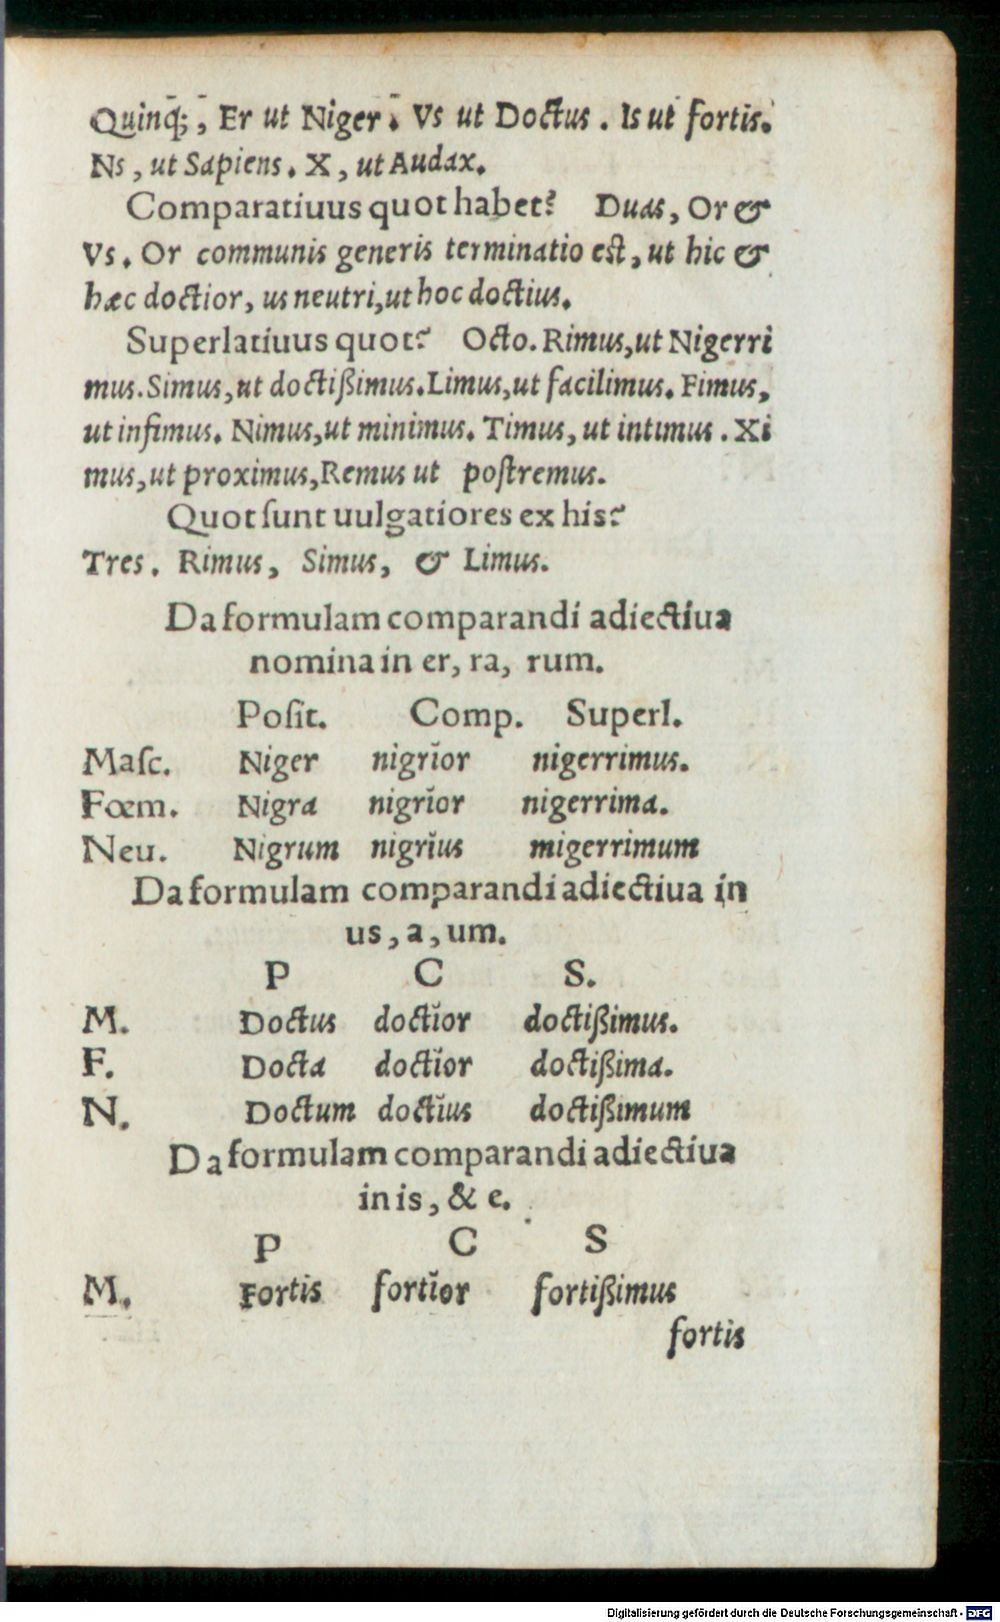 Quinq́;, Er ut Niger. Vs ut Doctus. Is ut fortis.
Ns, ut Sapiens. X, ut Audax.
Comparatiuus quot habet? Duas, Or &
Vs. Or communis generis terminatio est, ut hic &
hæc doctior, us neutri, ut hoc doctius.
Superlatiuus quot? Octo. Rimus, ut Nigerri
mus. Simus, ut doctißimus. Limus, ut facilimus. Fimus,
ut infimus. Nimus, ut minimus. Timus, ut intimus. Xi
mus, ut proximus, Remus ut postremus.
Quot ſunt uulgatiores ex his?
Tres. Rimus, Simus, & Limus.
Da formulam comparandi adiectiua
nomina in er, ra, rum.
Poſit. Comp. Superl.
Maſc. Niger nigrĭor nigerrimus.
Fœm. Nigra nigrĭor nigerrima.
Neu. Nigrum nigrĭus migerrimum
Da formulam comparandi adiectiua in
us, a, um.
P C S.
M. Doctus doctĭor doctißimus.
F. Docta doctĭor doctißima.
N. Doctum doctĭus doctißimum
Da formulam comparandi adiectiua
in is, & e.
P C S
M. Fortis fortĭor fortißimus
fortis
Digitalisierung gefördert durch die Deutsche Forschungsgemeinschaft - DFG